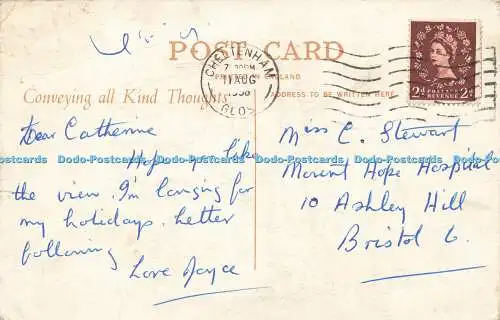 POST CARD
CHELTENHAM
11 AUG
1958
GLOS
PRINTED IN ENGLAND
Conveying all Kind Thoughts
ADDRESS TO BE WRITTEN HERE
POSTAGE
REVENUE
2d 2d
Dear Catherine
Hope you like
the view. I'm longing for
my holidays. Letter
following
Love Joyce
Miss C. Stewart
Mount Hope Hospital
10 Ashley Hill
Bristol 6.
Dodo-Postcards Dodo-Postcards Dodo-Postcards Dodo-Postcards Dodo-Postcards Dodo-Postcards